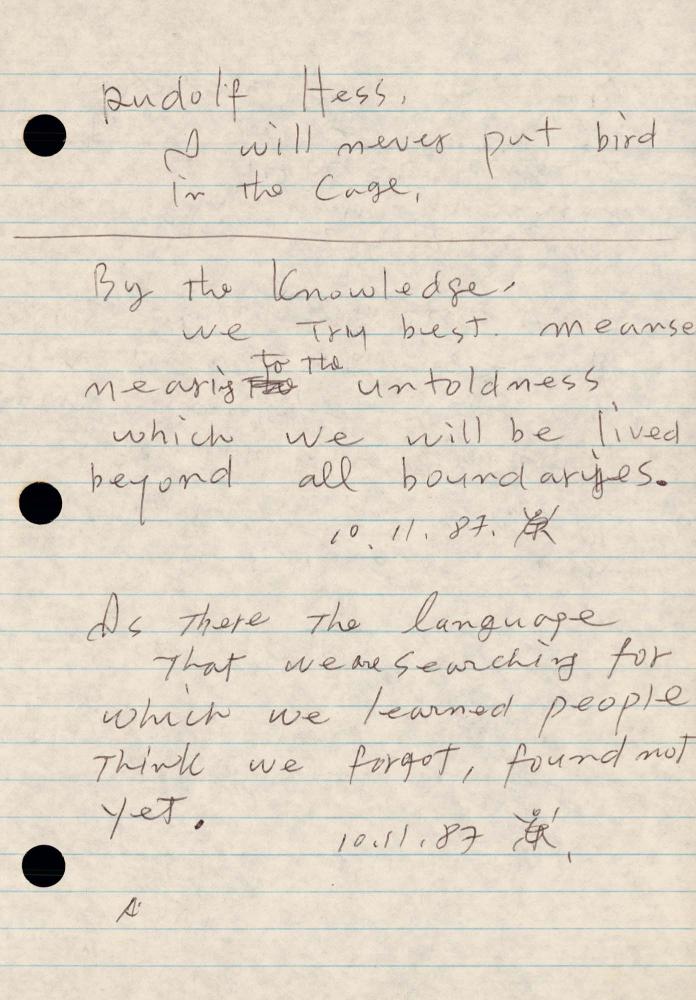 Rudolf Hess,
I will never put bird
in the Cage,
By the Knowledge,
we Try best. meanse
nearig to the untoldness
which we will be lived
beyond all boundaryies.
10. 11. 87.
Is There The language
That we are Searching for
which we learned people
Think we forgot, found not
yet.
10.11.87